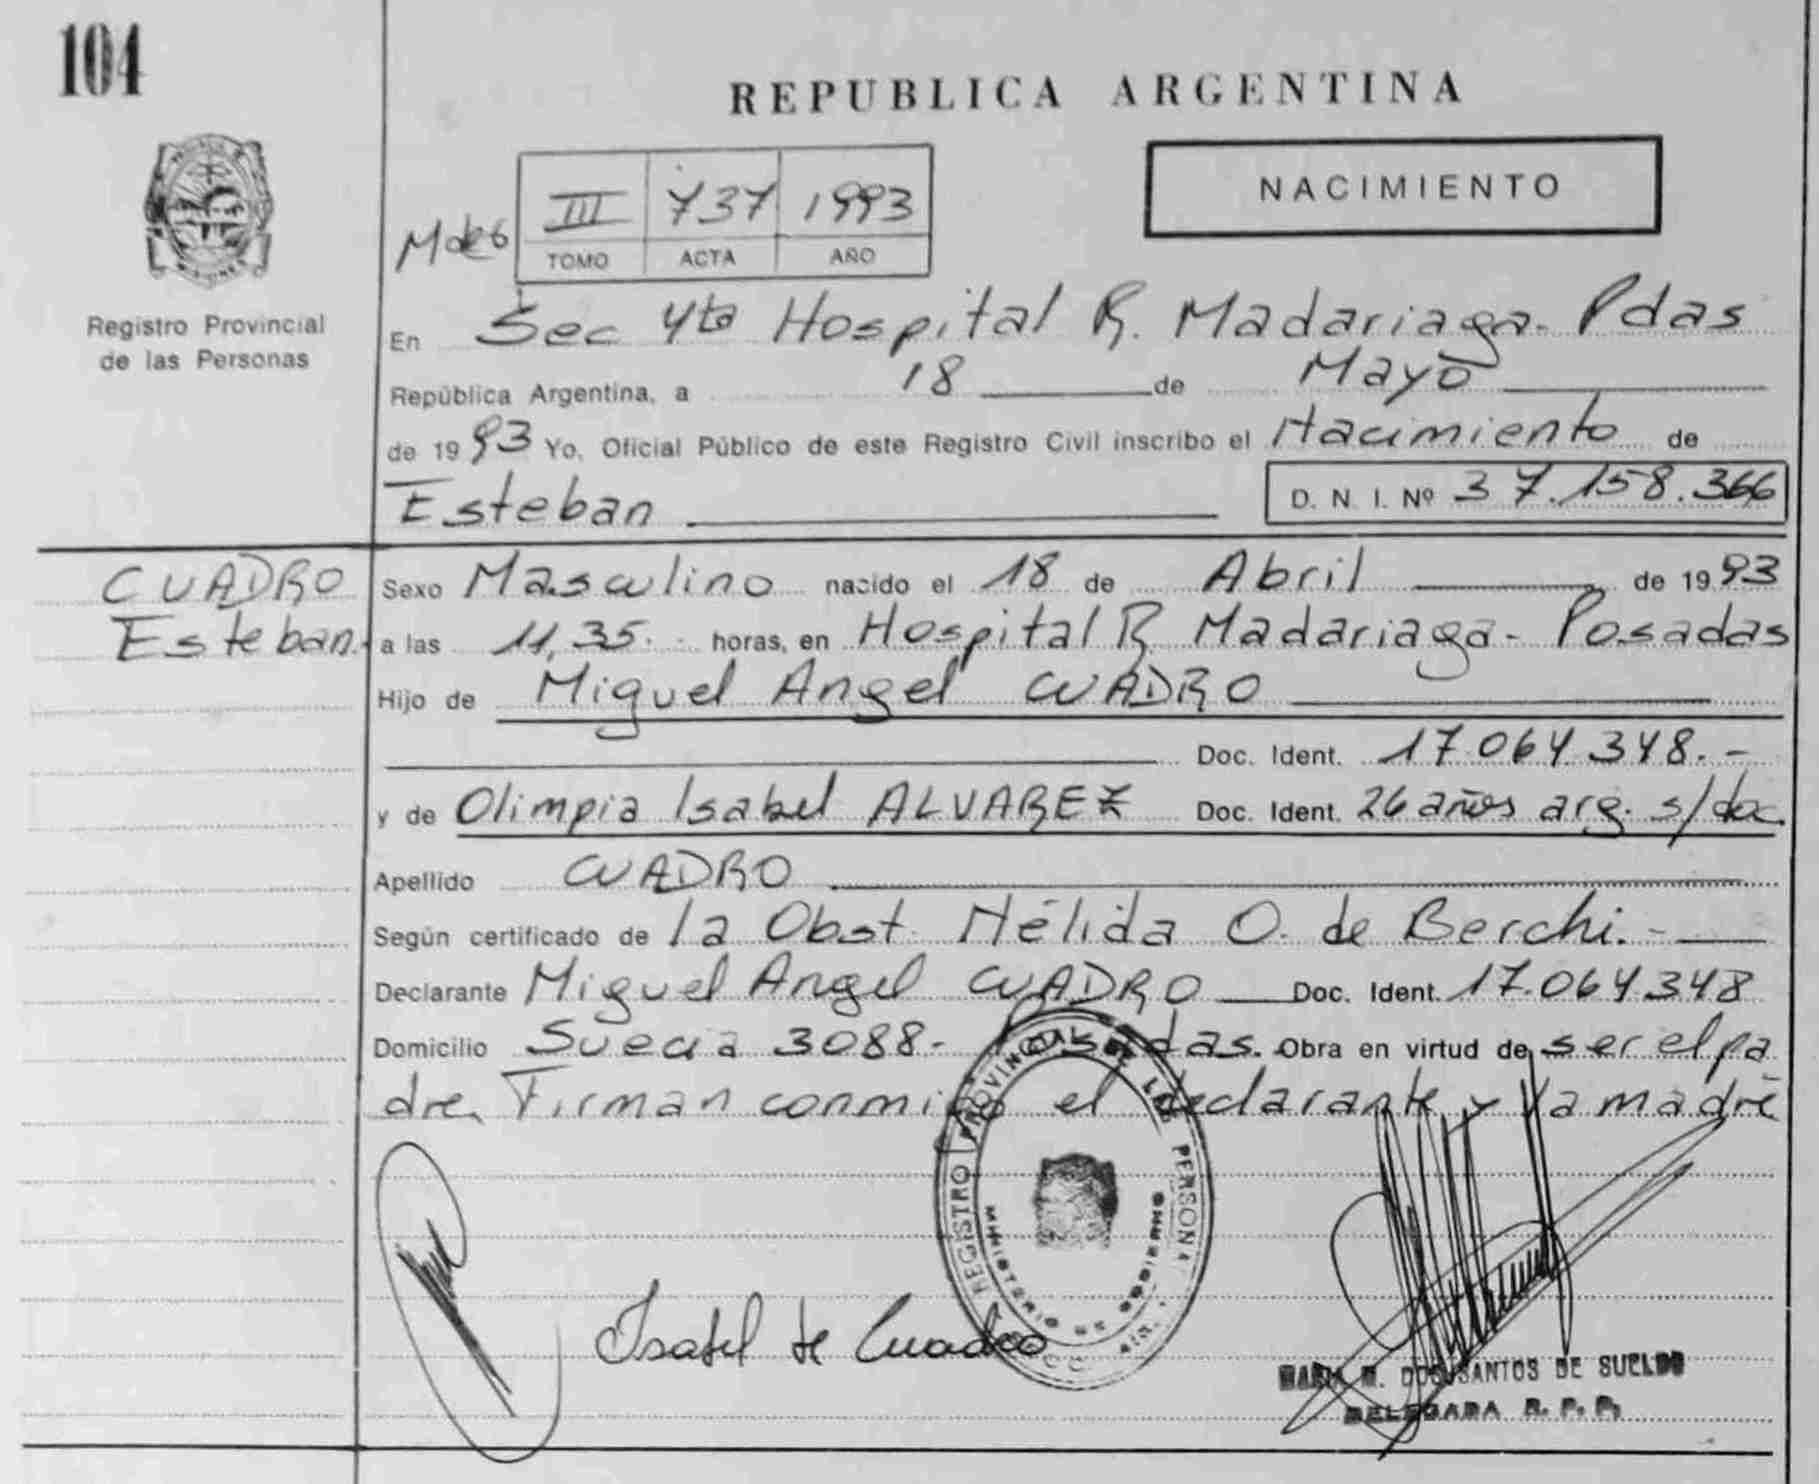 104
REPUBLICA ARGENTINA
NACIMIENTO
III 737 1993
TOMO ACTA AÑO
Registro Provincial
de las Personas
En Sec 4ta Hospital R. Madariaga - Pdas
República Argentina, a 18 de Mayo
de 1993 Yo, Oficial Público de este Registro Civil inscribo el Nacimiento de
Esteban D. N. I. Nº 37.158.366
CUADRO
Esteban.
Sexo Masculino nacido el 18 de Abril de 1993
a las 11,35.- horas, en Hospital R. Madariaga - Posadas
Hijo de Miguel Angel CUADRO
Doc. Ident. 17.064.348.-
y de Olimpia Isabel ALVAREZ Doc. Ident. 26 años arg. s/doc.
Apellido CUADRO
Según certificado de la Obst. Nélida O. de Berchi.-
Declarante Miguel Angel CUADRO Doc. Ident. 17.064.348
Domicilio Suecia 3088.- Posadas. Obra en virtud de ser el pa
dre. Firman conmigo el declarante y la madre
REGISTRO PROVINCIAL DE LAS PERSONAS
MINISTERIO DE GOBIERNO
Isabel de Cuadro
DOS SANTOS DE SUELDO
DELEGADA R. P. P.